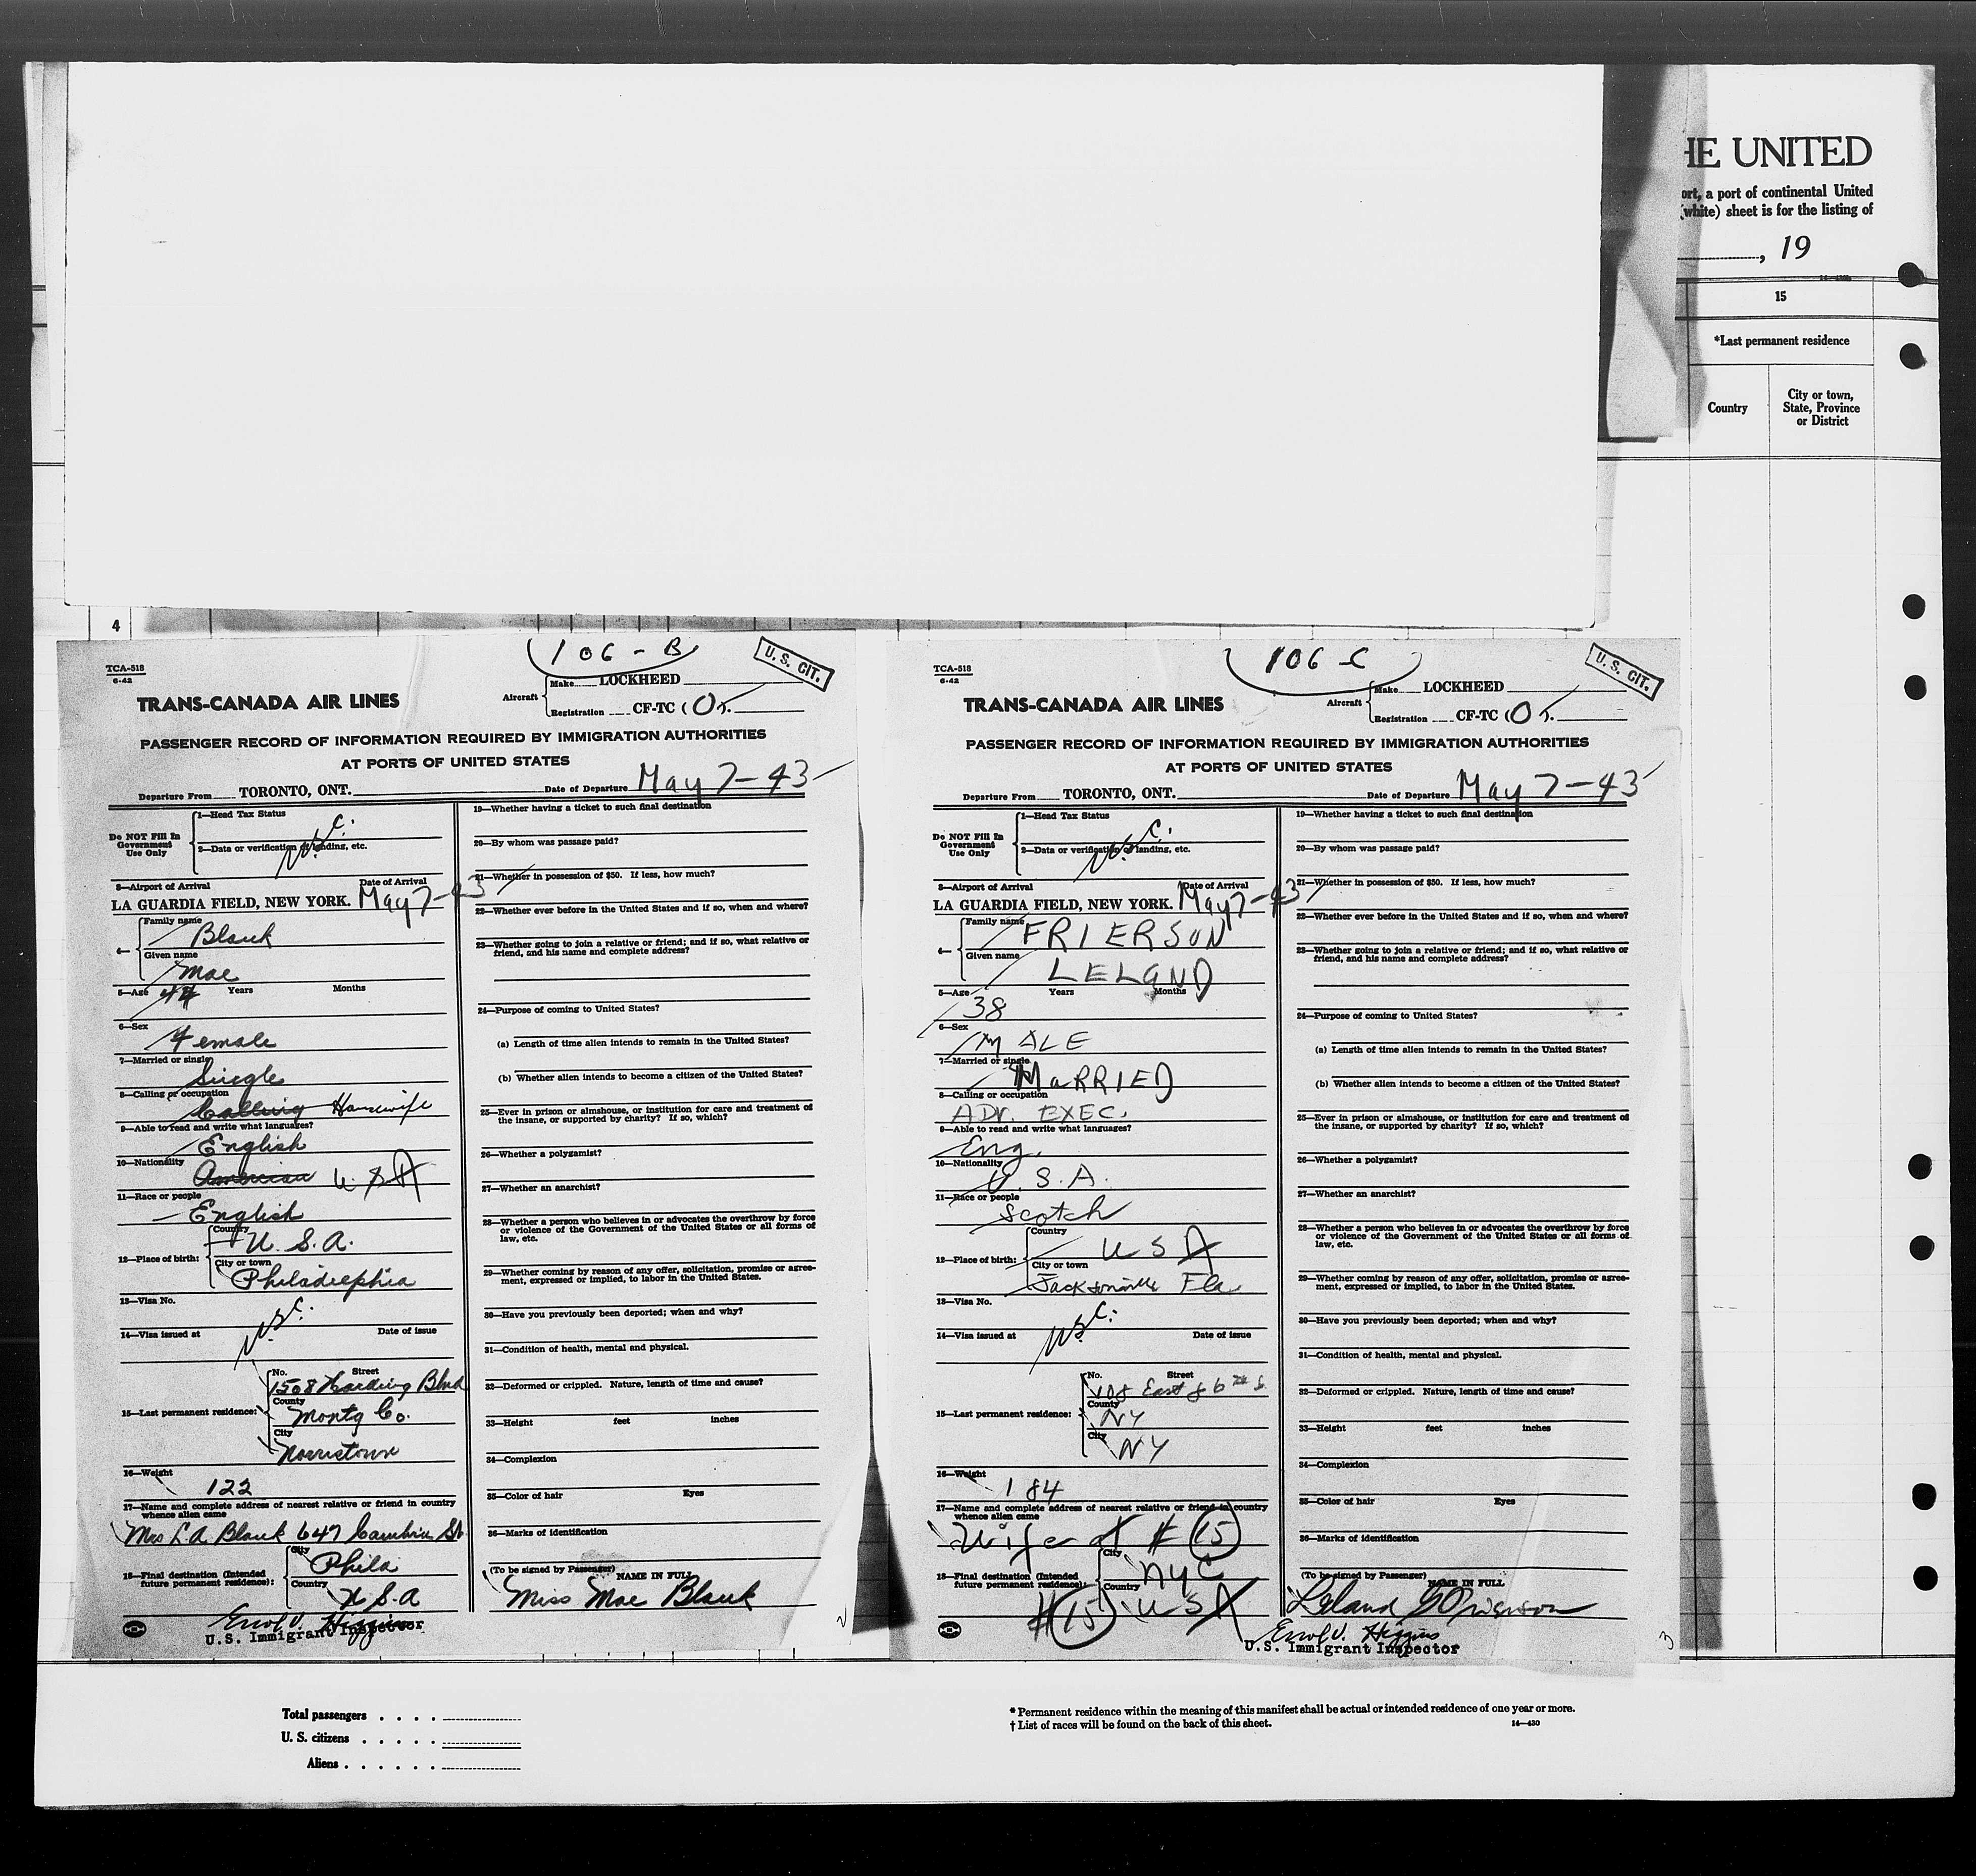 HE UNITED
ort, a port of continental United
(white) sheet is for the listing of
, 19
15
*Last permanent residence
Country
City or town,
State, Province
or District
4
106 - B
U. S. CIT.
TCA-518
6-42
Make LOCKHEED
Aircraft
Registration CF-TC (O
TRANS-CANADA AIR LINES
PASSENGER RECORD OF INFORMATION REQUIRED BY IMMIGRATION AUTHORITIES
AT PORTS OF UNITED STATES
Departure From TORONTO, ONT. Date of Departure May 7-43
Do NOT Fill In
Government
Use Only
1—Head Tax Status
2—Data or verification of landing, etc.
3—Airport of Arrival Date of Arrival
LA GUARDIA FIELD, NEW YORK. May 7-43
4—
Family name
Blank
Given name
Mae
5—Age 44 Years Months
6—Sex
Female
7—Married or single
Single
8—Calling or occupation
Calling Housewife
9—Able to read and write what languages?
English
10—Nationality
American U S A
11—Race or people
English
12—Place of birth:
Country
U. S. A.
City or town
Philadelphia
13—Visa No.
14—Visa issued at Date of issue
15—Last permanent residence:
No. Street
1508 Harding Blvd
County
Montg Co.
City
Norristown
16—Weight
122
17—Name and complete address of nearest relative or friend in country
whence alien came
Mrs L. A. Blank 647 Cambria St
18—Final destination (Intended
future permanent residence):
City
Phila
Country
U. S. A
Errol V. Higgins
U.S. Immigrant Inspector
19—Whether having a ticket to such final destination
20—By whom was passage paid?
21—Whether in possession of $50. If less, how much?
22—Whether ever before in the United States and if so, when and where?
23—Whether going to join a relative or friend; and if so, what relative or
friend, and his name and complete address?
24—Purpose of coming to United States?
(a) Length of time alien intends to remain in the United States?
(b) Whether alien intends to become a citizen of the United States?
25—Ever in prison or almshouse, or institution for care and treatment of
the insane, or supported by charity? If so, which?
26—Whether a polygamist?
27—Whether an anarchist?
28—Whether a person who believes in or advocates the overthrow by force
or violence of the Government of the United States or all forms of
law, etc.
29—Whether coming by reason of any offer, solicitation, promise or agree-
ment, expressed or implied, to labor in the United States.
30—Have you previously been deported; when and why?
31—Condition of health, mental and physical.
32—Deformed or crippled. Nature, length of time and cause?
33—Height feet inches
34—Complexion
35—Color of hair Eyes
36—Marks of identification
(To be signed by Passenger) NAME IN FULL
Miss Mae Blank
2
106 - C
U. S. CIT.
TCA-518
6-42
Make LOCKHEED
Aircraft
Registration CF-TC (O
TRANS-CANADA AIR LINES
PASSENGER RECORD OF INFORMATION REQUIRED BY IMMIGRATION AUTHORITIES
AT PORTS OF UNITED STATES
Departure From TORONTO, ONT. Date of Departure May 7-43
Do NOT Fill In
Government
Use Only
1—Head Tax Status
2—Data or verification of landing, etc.
3—Airport of Arrival Date of Arrival
LA GUARDIA FIELD, NEW YORK. May 7-43
4—
Family name
FRIERSON
Given name
LELAND
5—Age Years Months
38
6—Sex
MALE
7—Married or single
MARRIED
8—Calling or occupation
ADV. EXEC.
9—Able to read and write what languages?
Eng.
10—Nationality
U. S. A.
11—Race or people
Scotch
12—Place of birth:
Country
U S A
City or town
Jacksonville Fla
13—Visa No.
14—Visa issued at Date of issue
15—Last permanent residence:
No. Street
108 East 86th S
County
NY
City
NY
16—Weight
184
17—Name and complete address of nearest relative or friend in country
whence alien came
Wife at # 15
18—Final destination (Intended
future permanent residence):
City
NYC
Country
#15 USA
19—Whether having a ticket to such final destination
20—By whom was passage paid?
21—Whether in possession of $50. If less, how much?
22—Whether ever before in the United States and if so, when and where?
23—Whether going to join a relative or friend; and if so, what relative or
friend, and his name and complete address?
24—Purpose of coming to United States?
(a) Length of time alien intends to remain in the United States?
(b) Whether alien intends to become a citizen of the United States?
25—Ever in prison or almshouse, or institution for care and treatment of
the insane, or supported by charity? If so, which?
26—Whether a polygamist?
27—Whether an anarchist?
28—Whether a person who believes in or advocates the overthrow by force
or violence of the Government of the United States or all forms of
law, etc.
29—Whether coming by reason of any offer, solicitation, promise or agree-
ment, expressed or implied, to labor in the United States.
30—Have you previously been deported; when and why?
31—Condition of health, mental and physical.
32—Deformed or crippled. Nature, length of time and cause?
33—Height feet inches
34—Complexion
35—Color of hair Eyes
36—Marks of identification
(To be signed by Passenger) NAME IN FULL
Leland Frierson
Errol V. Higgins
U.S. Immigrant Inspector
3
Total passengers . . . .
U. S. citizens . . . . .
Aliens . . . . . .
* Permanent residence within the meaning of this manifest shall be actual or intended residence of one year or more.
† List of races will be found on the back of this sheet. 14—420